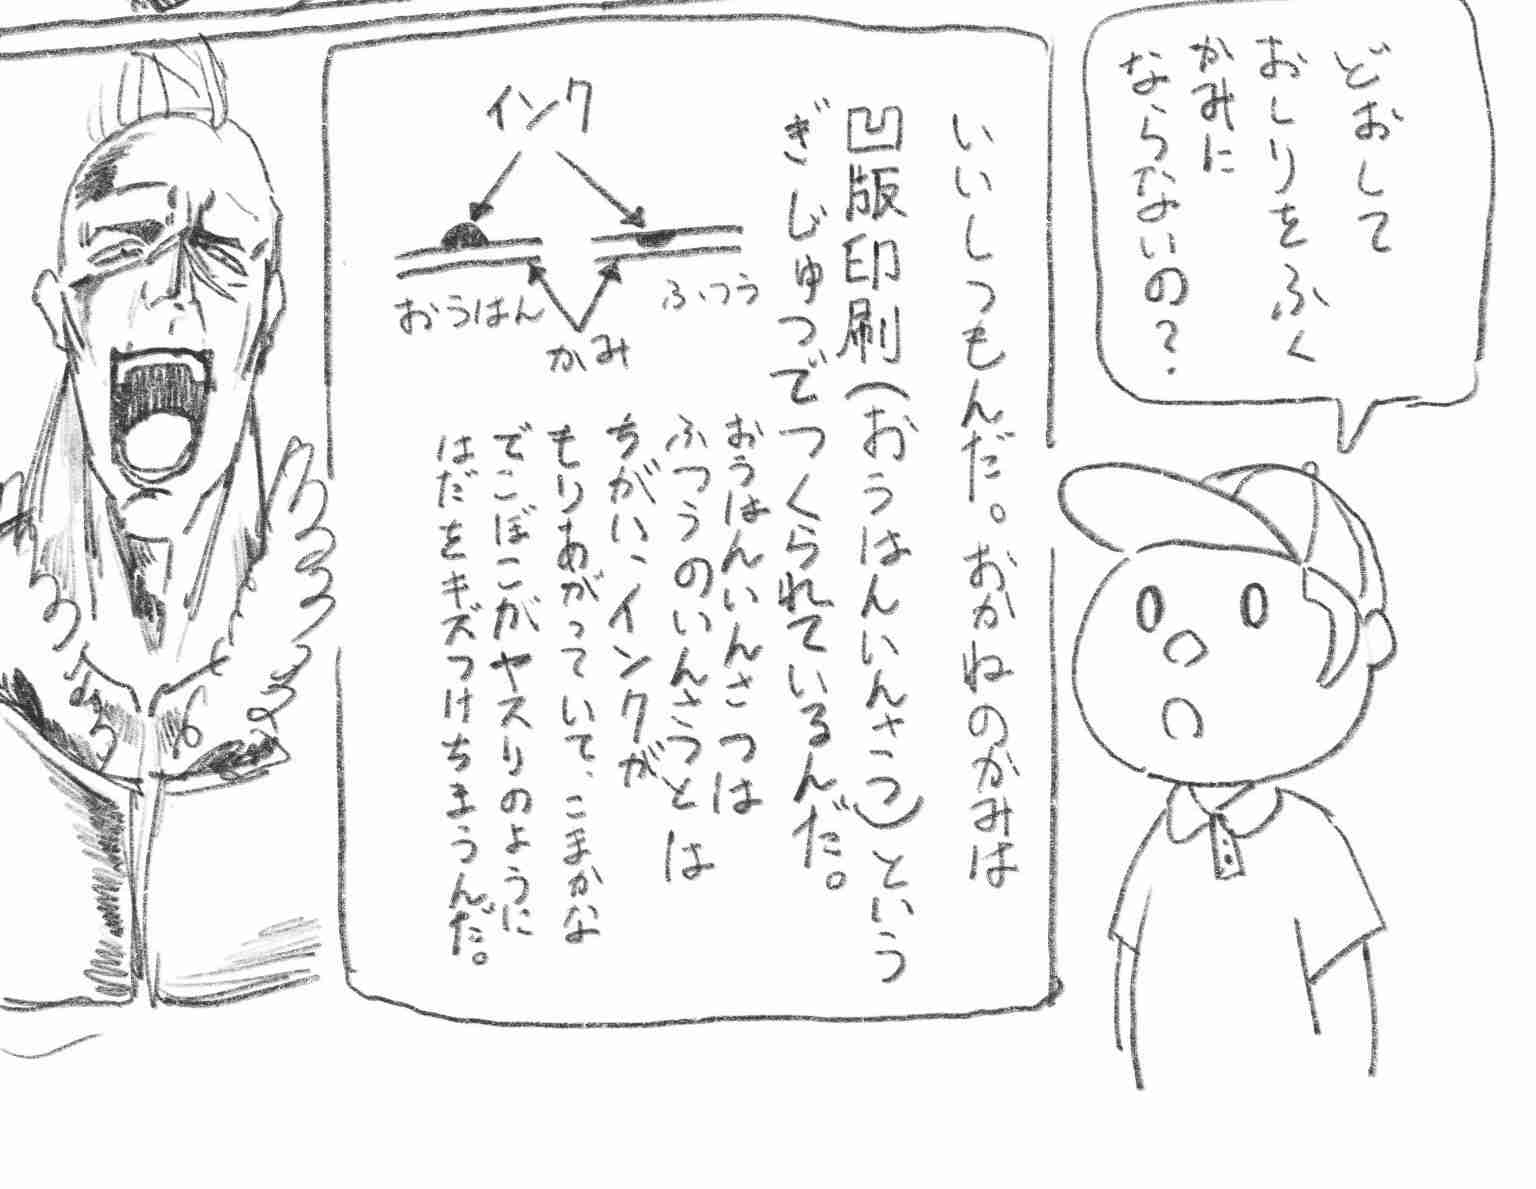 どおして
おしりをふく
かみに
ならないの?
いいしつもんだ。おかねのかみは
凹版印刷(おうはんいんさつ)という
ぎじゅつでつくられているんだ。
おうはんいんさつは
ふつうのいんさつとは
ちがい、インクが
もりあがっていて、こまかな
でこぼこがヤスリのように
はだをキズつけちまうんだ。
インク
おうはん
ふつう
かみ